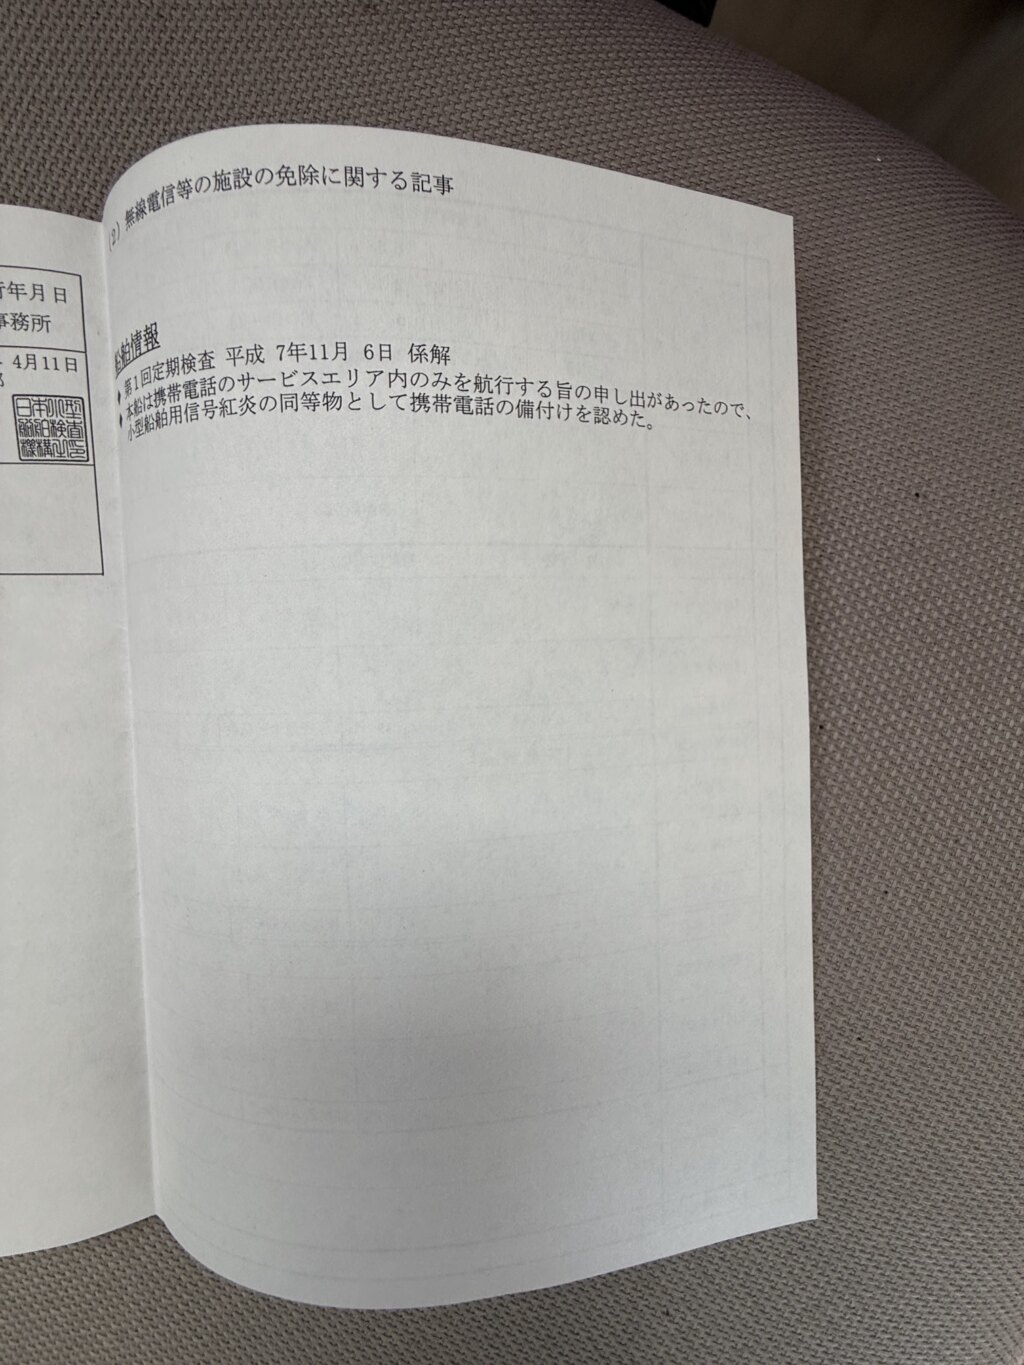 行年月日
事務所
4月11日
日本小型
船舶検査
機構之印
(2) 無線電信等の施設の免除に関する記事
船舶情報
◆ 第1回定期検査 平成 7年11月 6日 係解
◆ 本船は携帯電話のサービスエリア内のみを航行する旨の申し出があったので、
小型船舶用信号紅炎の同等物として携帯電話の備付けを認めた。